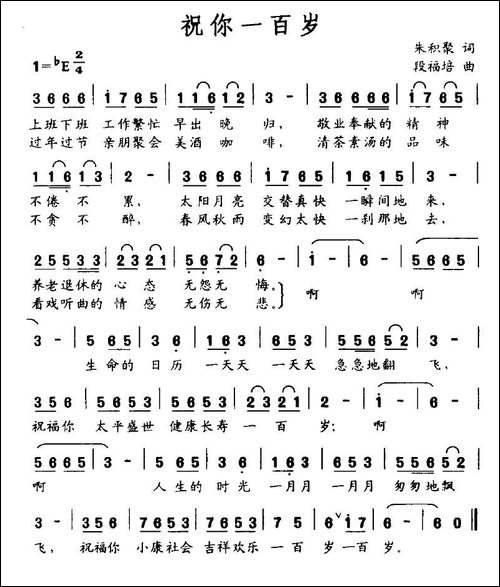 祝你一百岁
1=♭E 2/4
朱积聚 词
段福培 曲
3 6 6 6 | 1 7 6 5 | 1 1 6 1 2 | 3 - | 3 6 6 6 6 | 1 7 6 5 |
上班下班 工作繁忙 早出 晚 归， 敬业奉献的 精 神
过年过节 亲朋聚会 美酒 咖 啡， 清茶素汤的 品 味
1 1 6 1 3 | 2 - | 3 6 6 6 | 1 7 6 5 | 1 1 6 1 2 | 3 - |
不倦 不 累， 太阳月亮 交替真快 一瞬间地 来，
不贪 不 醉， 春风秋雨 变幻太快 一刹那地 去，
2 2 5 3 3 | 2 3 2 1 | 5 6 7 2 | 6 - | i - | 6 - |
养老退休的 心 态 无怨无 悔。 啊 啊
看戏听曲的 情 感 无伤无 悲。
3 - | 5 6 5 3 | 5 6 3 | 1 6 3 | 1 6 3 | 5 5 6 5 2 | 3 - |
生命的 日 历 一天天 一天天 急急地翻 飞，
3 5 6 | 5 6 5 3 | 7 6 5 6 | 2 3 2 1 | 2 - | i - | 6 - |
祝福你 太平盛世 健康长寿 一 百 岁； 啊
5 6 6 5 | 3 - | 5 6 5 3 | 5 6 3 | 1 6 3 | 1 6 3 | 5 5 6 5 2 |
啊 人生的 时 光 一月月 一月月 匆匆地飘
3 - | 3 5 6 | 5 6 5 3 | 7 6 5 6 | 7 7 5 | 6 ∨ i 7 | 6 - | 6 0 ‖
飞， 祝福你 小康社会 吉祥欢乐 一百 岁 一百 岁。